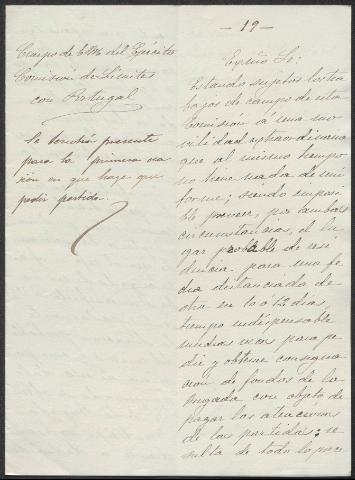 Cuerpo de E.M. del Ejército
Comisión de Límites
con Portugal
Se tendrá presente
para la primera oca
sión en que haya que
pedir partida.
- 19 -
Excmo Sr:
Estando sujetos los tra
bajos de campo de esta
Comisión á una mo
vilidad extraordinaria
que al mismo tiempo
no tiene nada de uni
forme; siendo imposi
ble preveer, por ambas
circunstancias, el lu
gar probable de resi
dencia para una fe
cha distanciada de
otra en 10 ó 12 dias,
tiempo indispensable
muchas veces para pe
dir y obtener consigna
cion de fondos de la
Brigada con objeto de
pagar las atenciones
de las partidas; re
sulta de todo lo